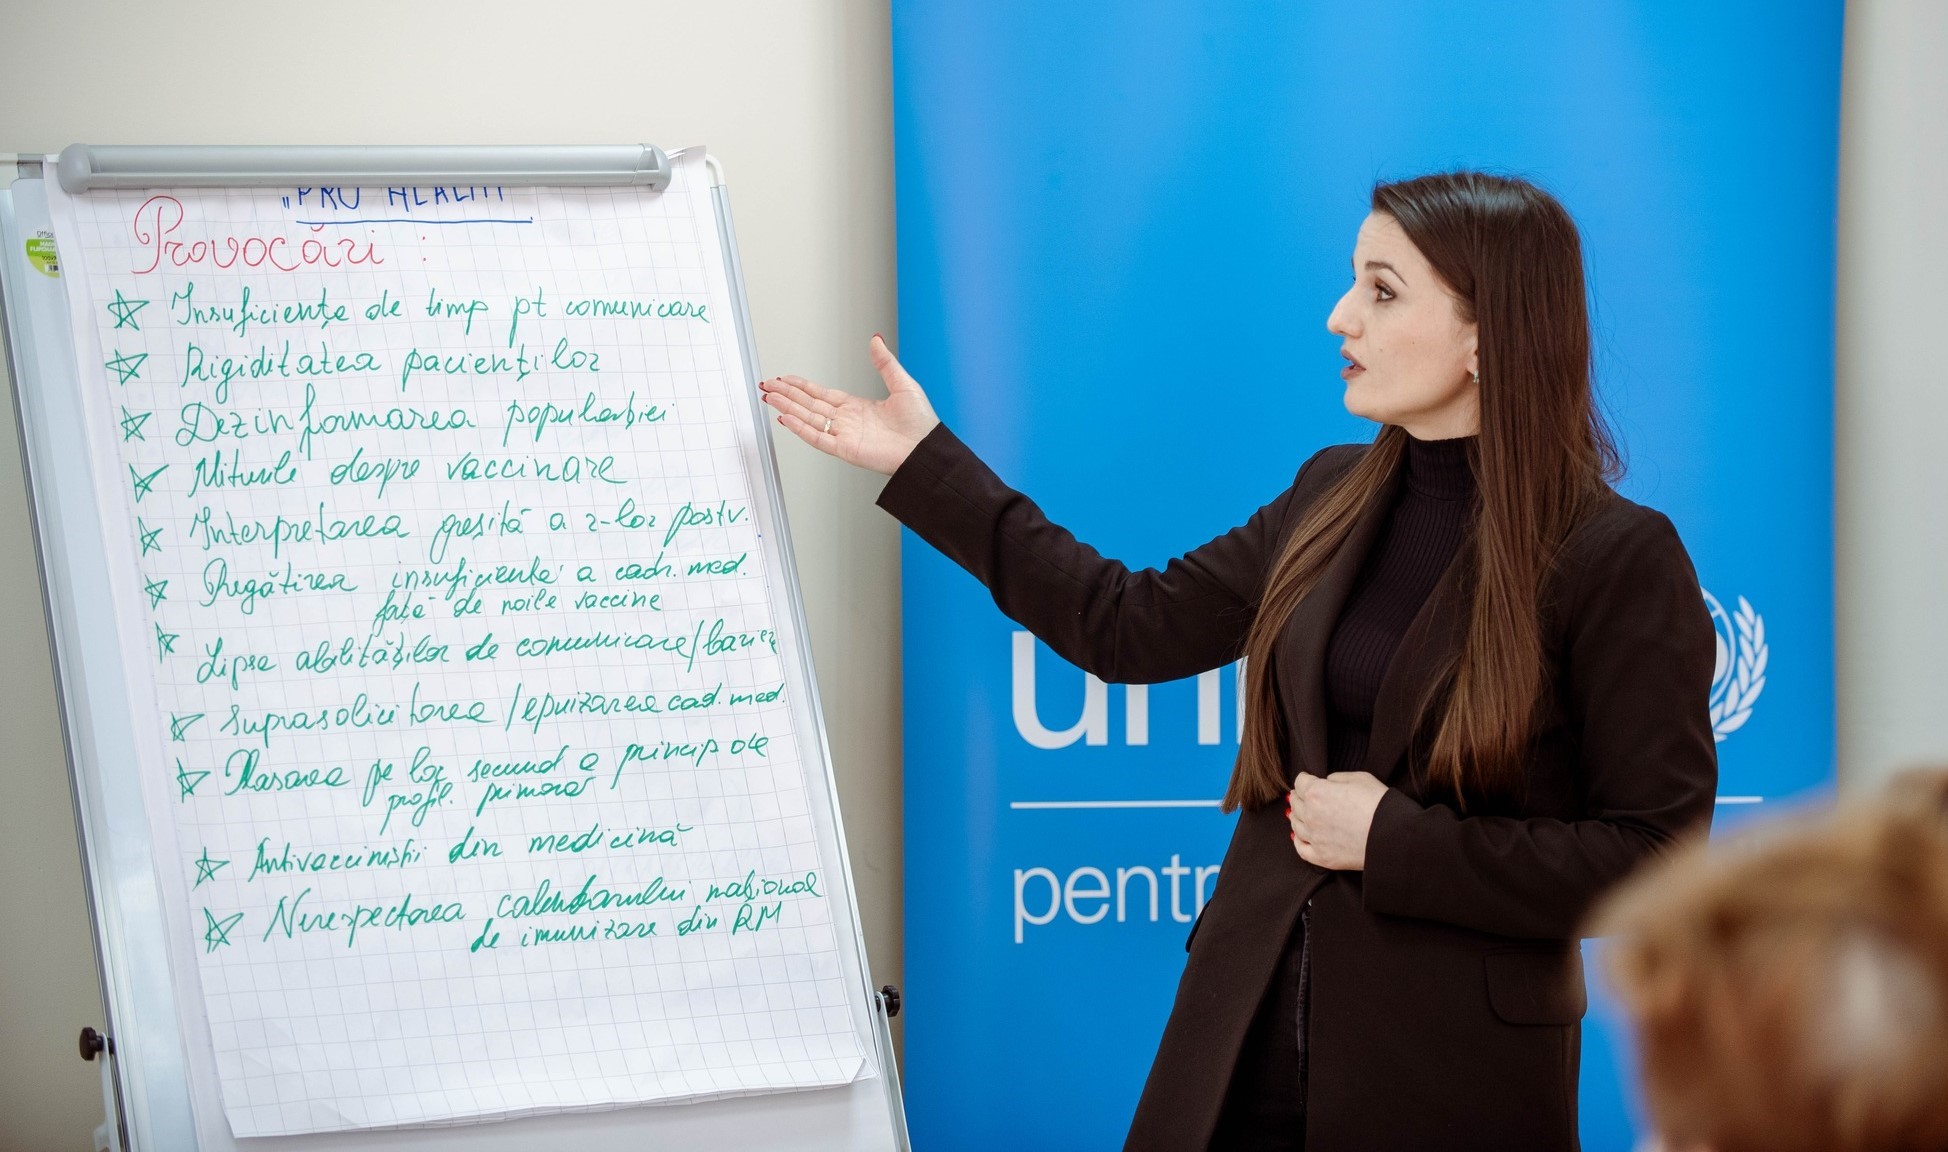 „PRO HEALTH
Provocări :
Insuficiențe de timp pt comunicare
Rigiditatea pacienților
Dezinformarea populației
Miturile despre vaccinare
Interpretarea greșită a r-lor postv.
Pregătirea insuficientă a cadr. med.
față de noile vaccine
Lipsa abilităților de comunicare/barier
Suprasolicitarea/epuizarea cad. med.
Plasarea pe loc secund a princip de
profil. primară
Antivacciniștii din medicină
Nerespectarea calendarului național
de imunizare din RM
uni
pentr